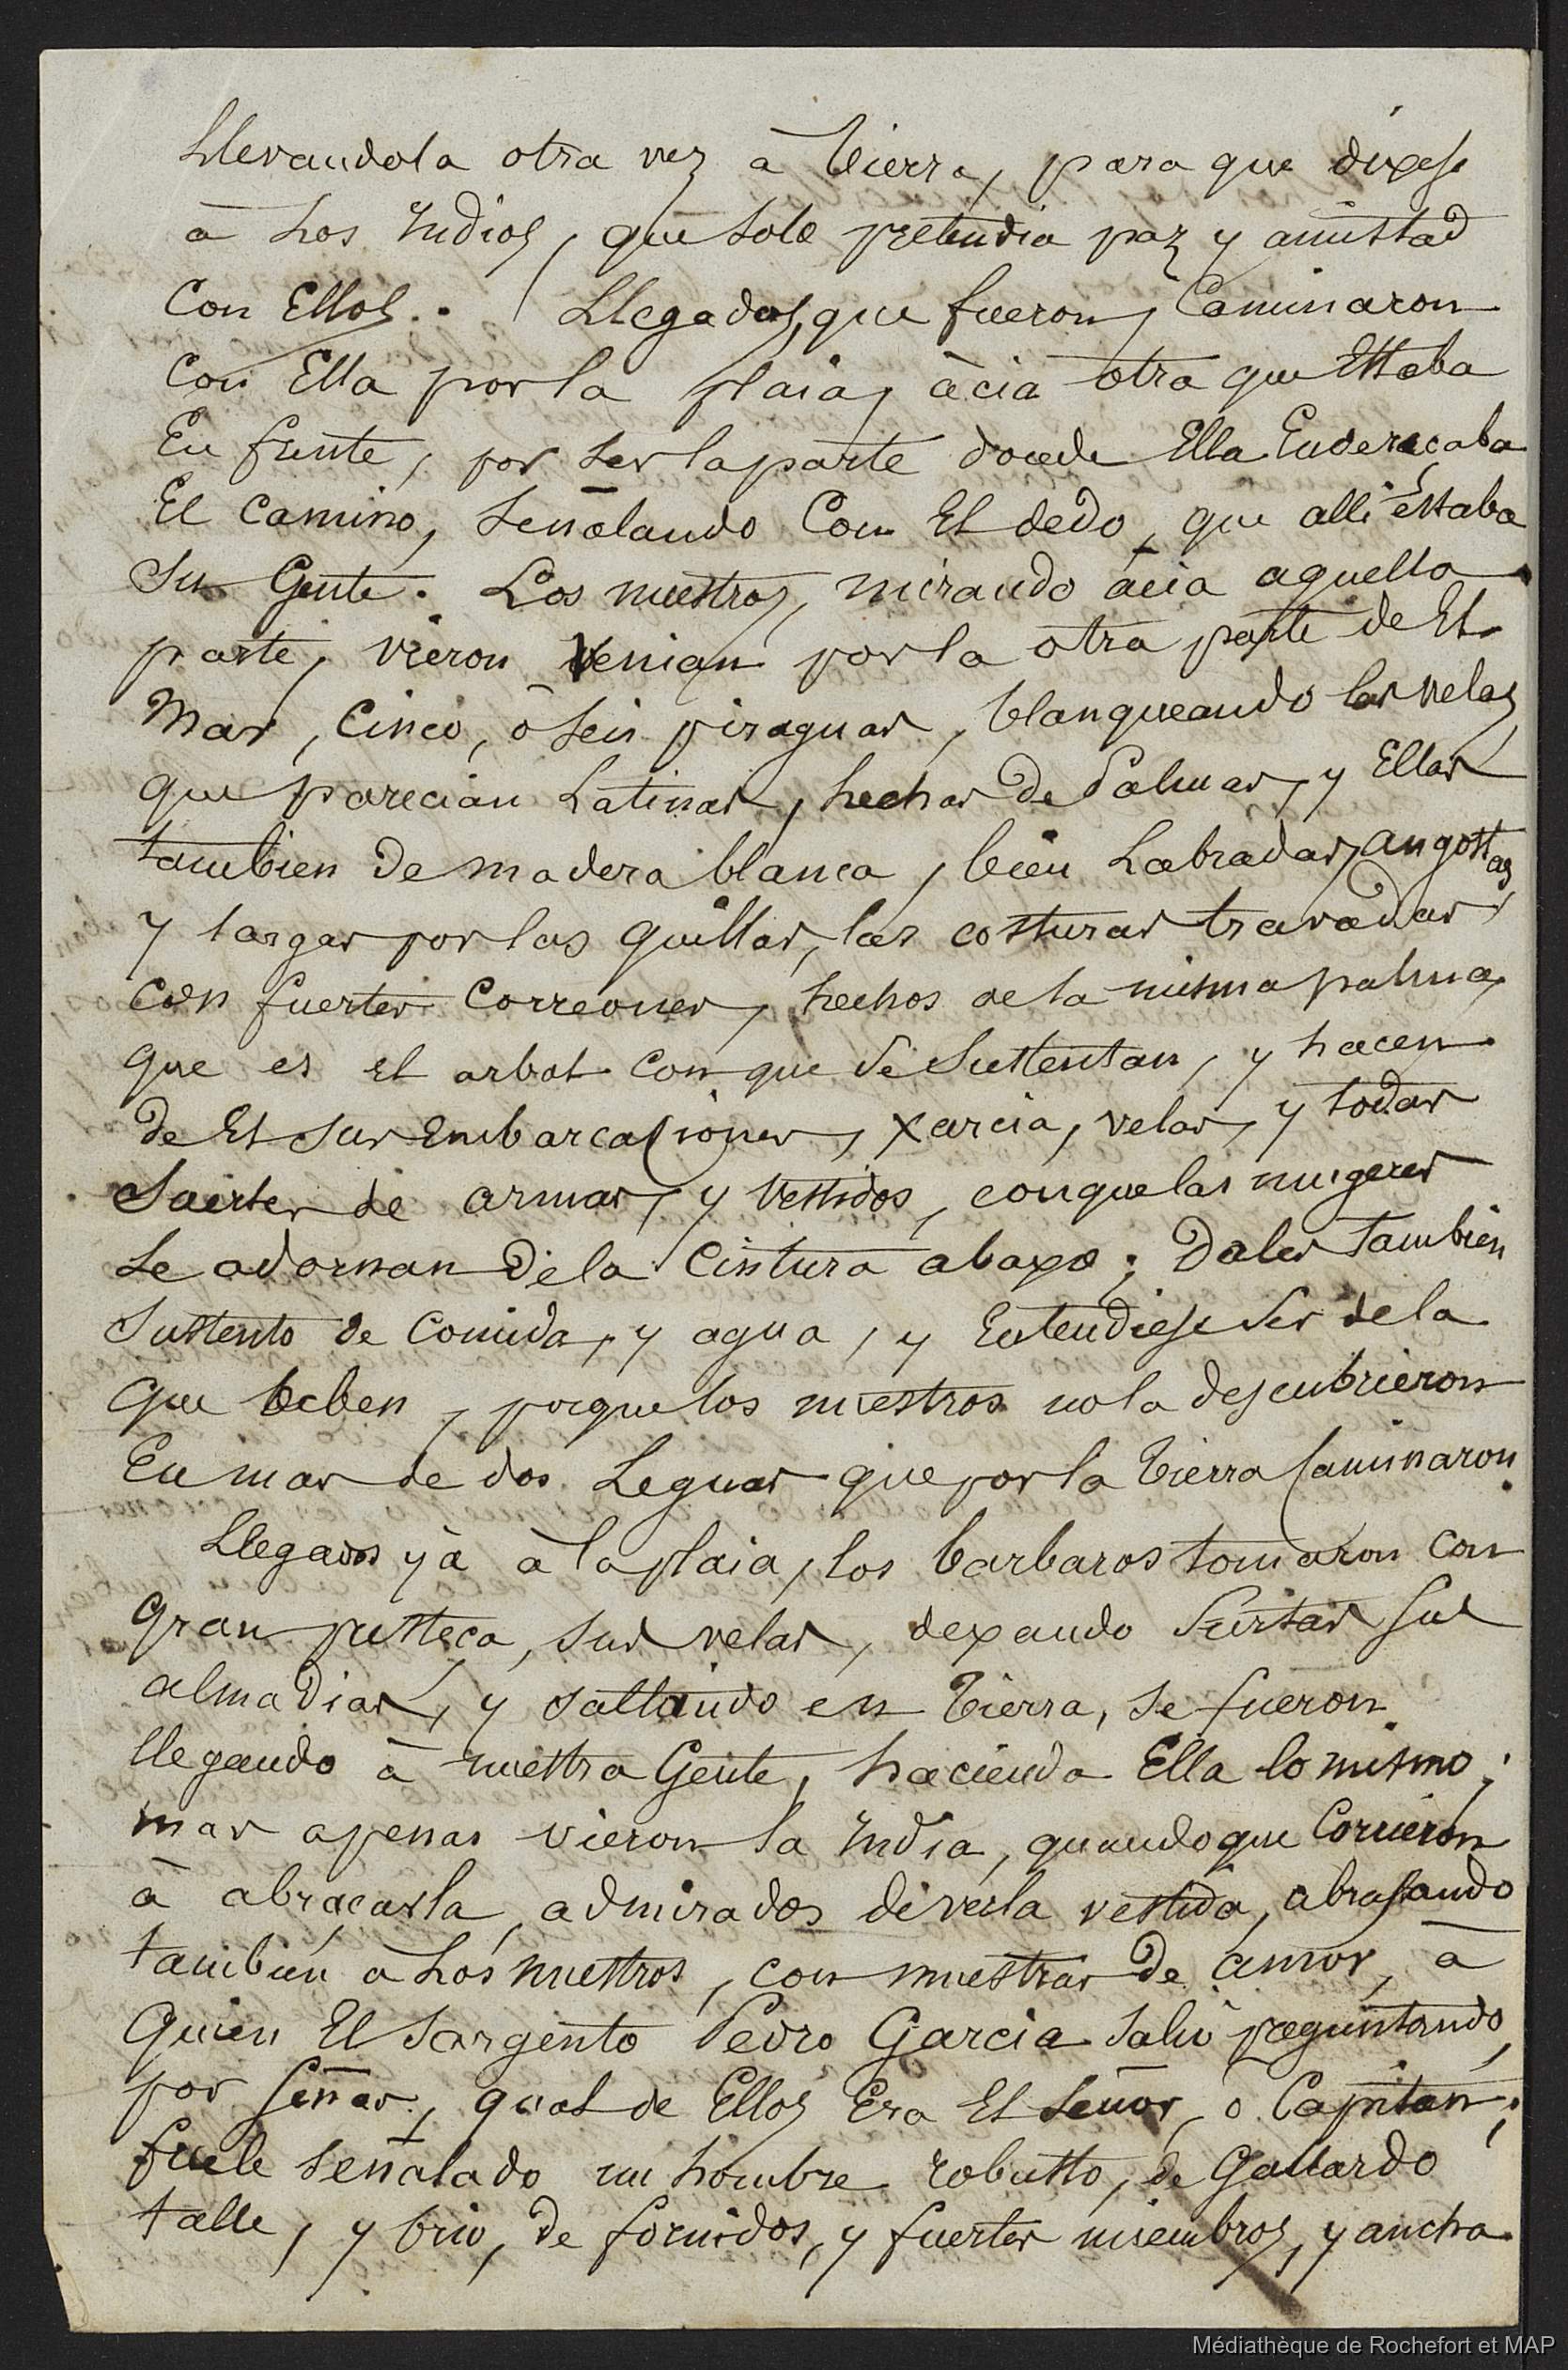 Llevandola otra vez à tierra, para que dixese
à Los Indios, que solo pretendia paz y amistad
Con Ellos. Llegados, que fueron, Caminaron
Con Ella por la plaia, àcia otra que Estaba
En frente, por ser la parte donde Ella Enderaçaba
El Camino, señalando Con El dedo, que alli estaba
Su Gente. Los nuestros, mirando àcia aquella
parte, vieron venian por la otra parte de El
Mar, Cinco, ò seis piraguas, blanqueando las velas,
que parecian Latinas, hechas De Palmas, y Ellas
tambien De madera blanca, bien Labradas, angostas,
y largas por las quillas, las costuras travadas
con fuertes Correones, hechos de la misma palma,
que es el arbol con que se Sustentan, y hacen
de El sus Embarcasiones, xarcia, velas, y todas
Suertes de armas, y Vestidos, conque las mugeres
se adornan De la Cintura abaxo; Dales tambien
Sustento de Comida, y agua, y Entendiese Ser de la
que beben, porque los nuestros no la descubrieron
En mas de dos Leguas que por la tierra Caminaron.
Llegados yà à la plaia, los barbaros tomaron con
gran presteça, sus velas, dexando Surtas sus
almadias, y saltando en tierra, se fueron
llegando à nuestra Gente, haciendo Ella lo mismo;
mas apenas vieron la India, quando que Corrieron
à abraçarla, admirados de verla vestida, abrasando
tambien à Los nuestros, con muestras De amor, à
quien El Sargento Pedro Garcia Saliò preguntando,
por Señas, qual de Ellos Era El Señor, ò Capitan;
fuele Señalado un hombre robusto, de Gallardo
talle, y brio, De fornidos, y fuertes miembros, y ancha
Médiathèque de Rochefort et MAP